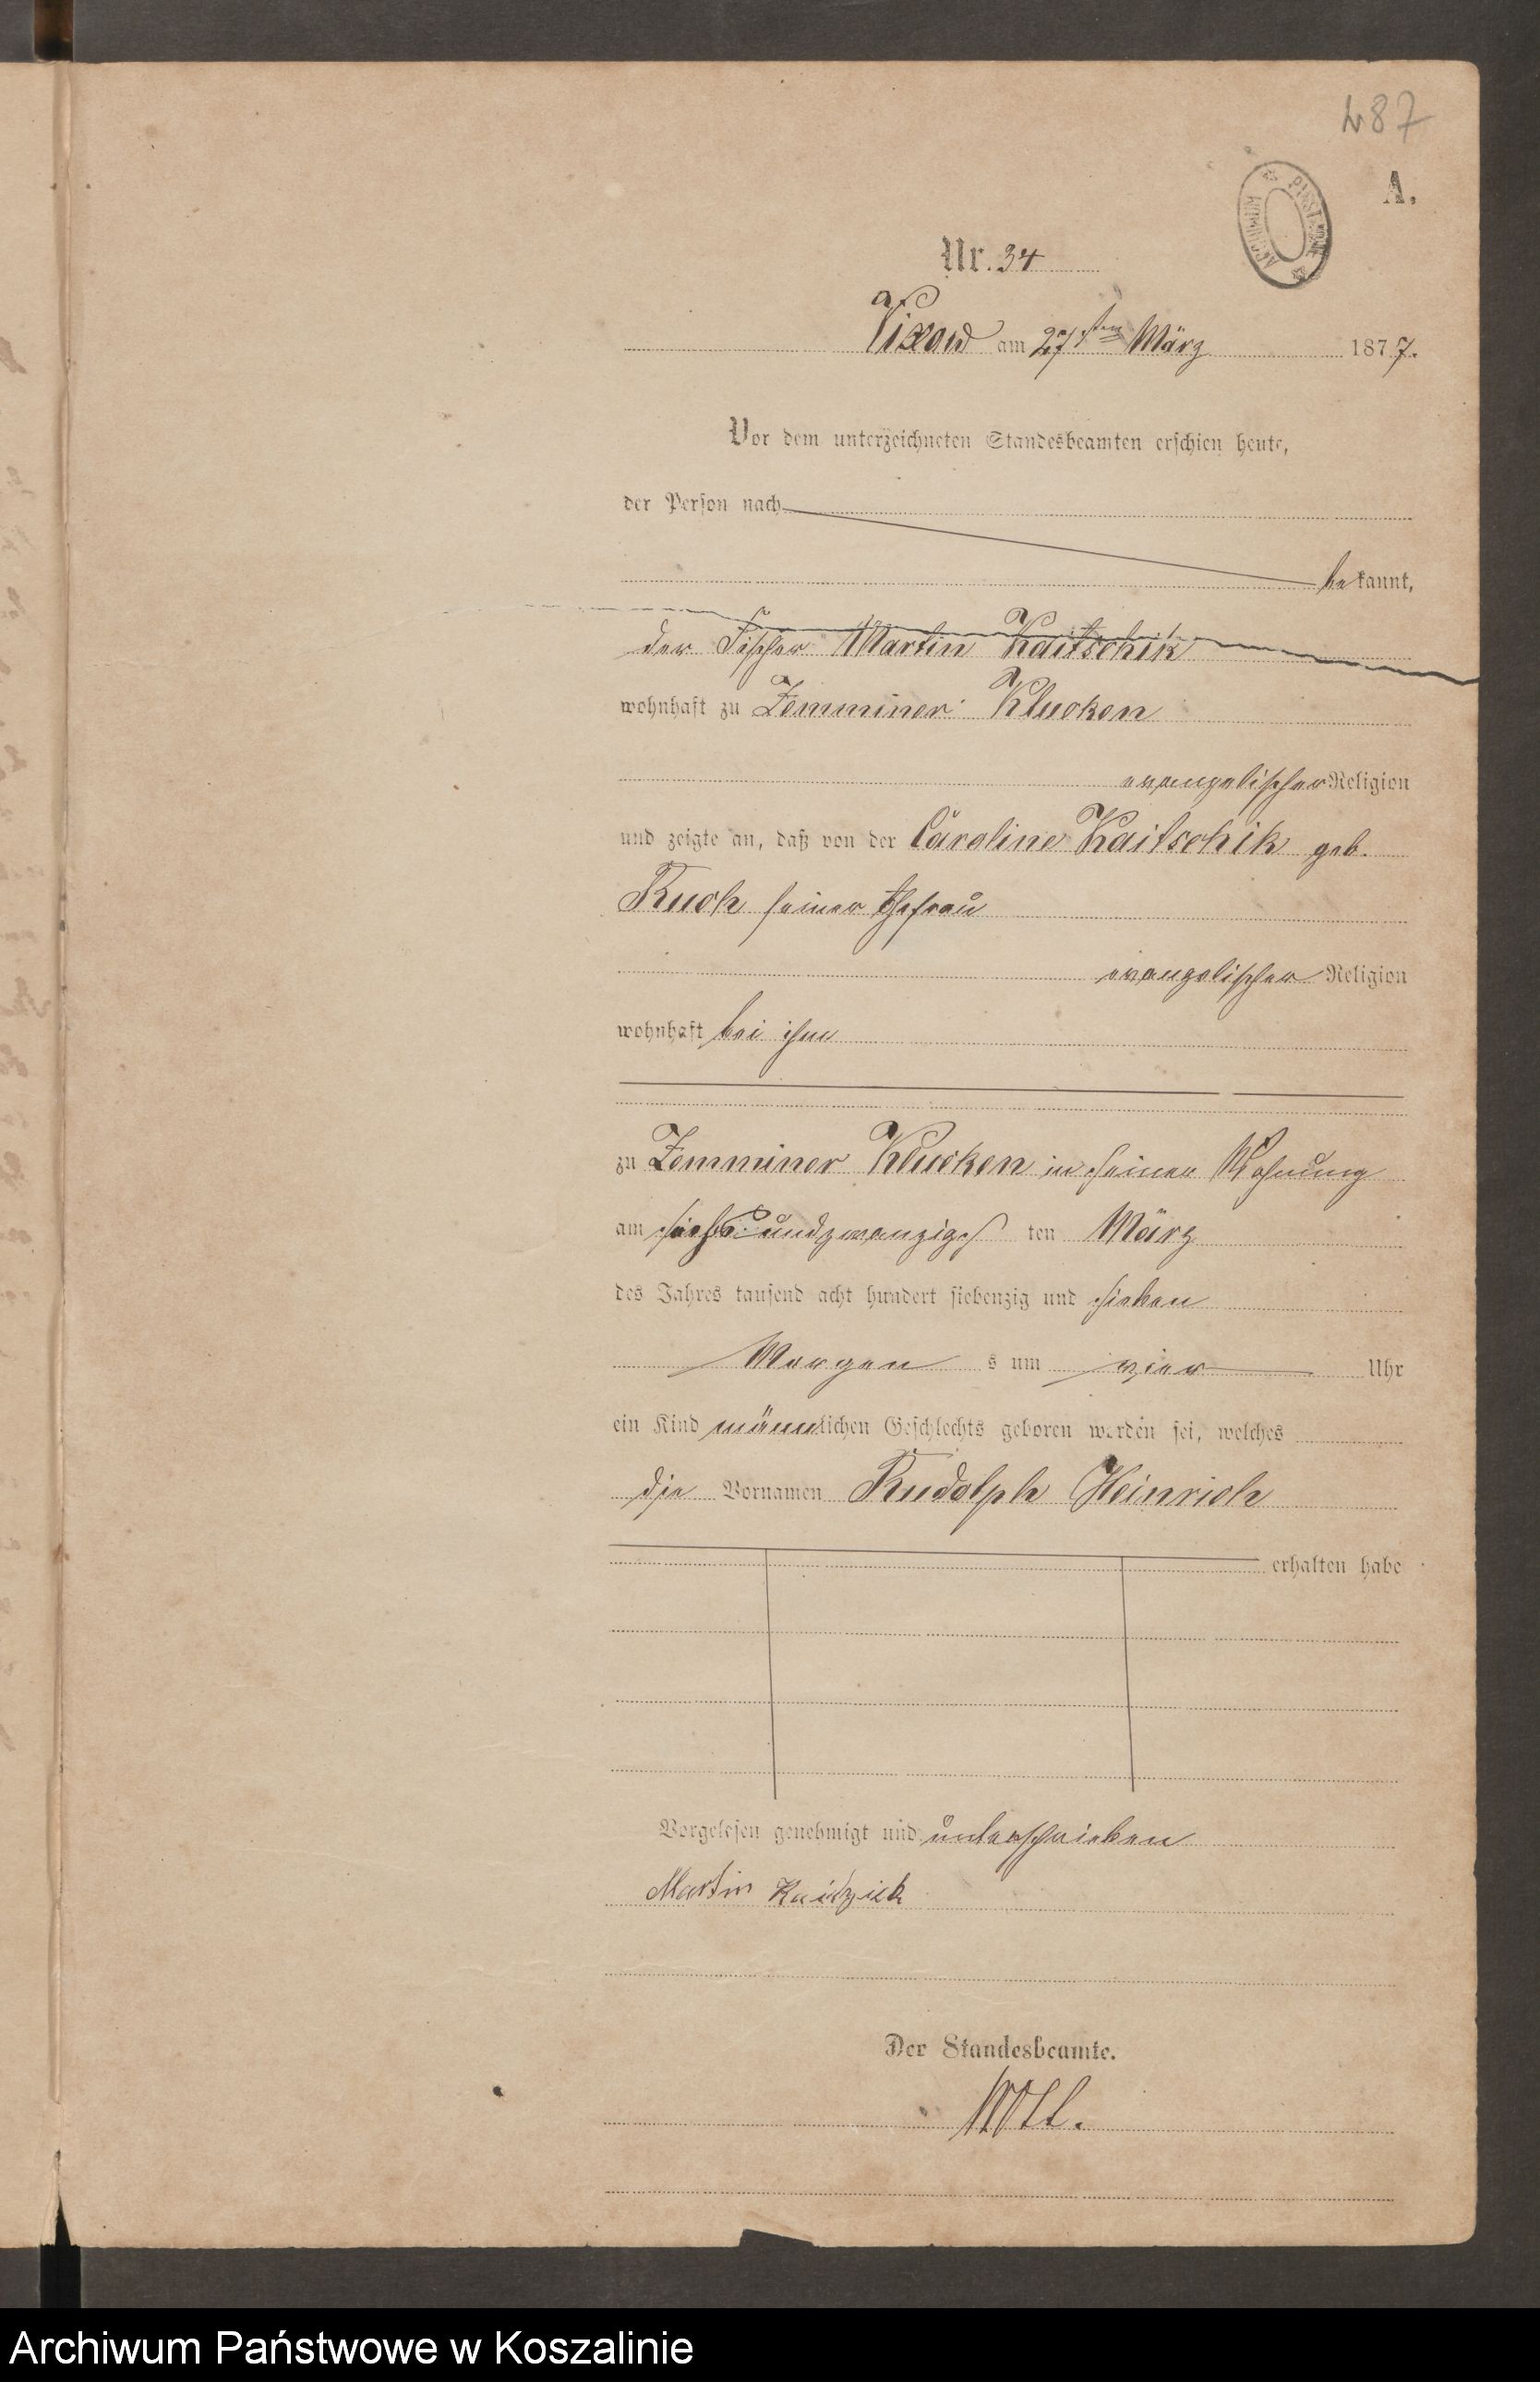 487
A.
ARCHIWUM PAŃSTWOWE
Nr. 34
Vixow am 27sten März 1877.
Vor dem unterzeichneten Standesbeamten erschien heute,
der Person nach
bekannt,
der Fischer Martin Kaitschik
wohnhaft zu Zemminer Klucken
evangelischer Religion
und zeigte an, daß von der Caroline Kaitschik geb.
Ruch seiner Ehefrau
evangelischer Religion
wohnhaft bei ihm
zu Zemminer Klucken in seiner Wohnung
am sechsundzwanzigs ten März
des Jahres tausend acht hundert siebenzig und sieben
Morgen s um vier Uhr
ein Kind männlichen Geschlechts geboren worden sei, welches
die Vornamen Rudolph Heinrich
erhalten habe
Vorgelesen genehmigt und unterschrieben
Martin Kaitzick
Der Standesbeamte.
Archiwum Państwowe w Koszalinie